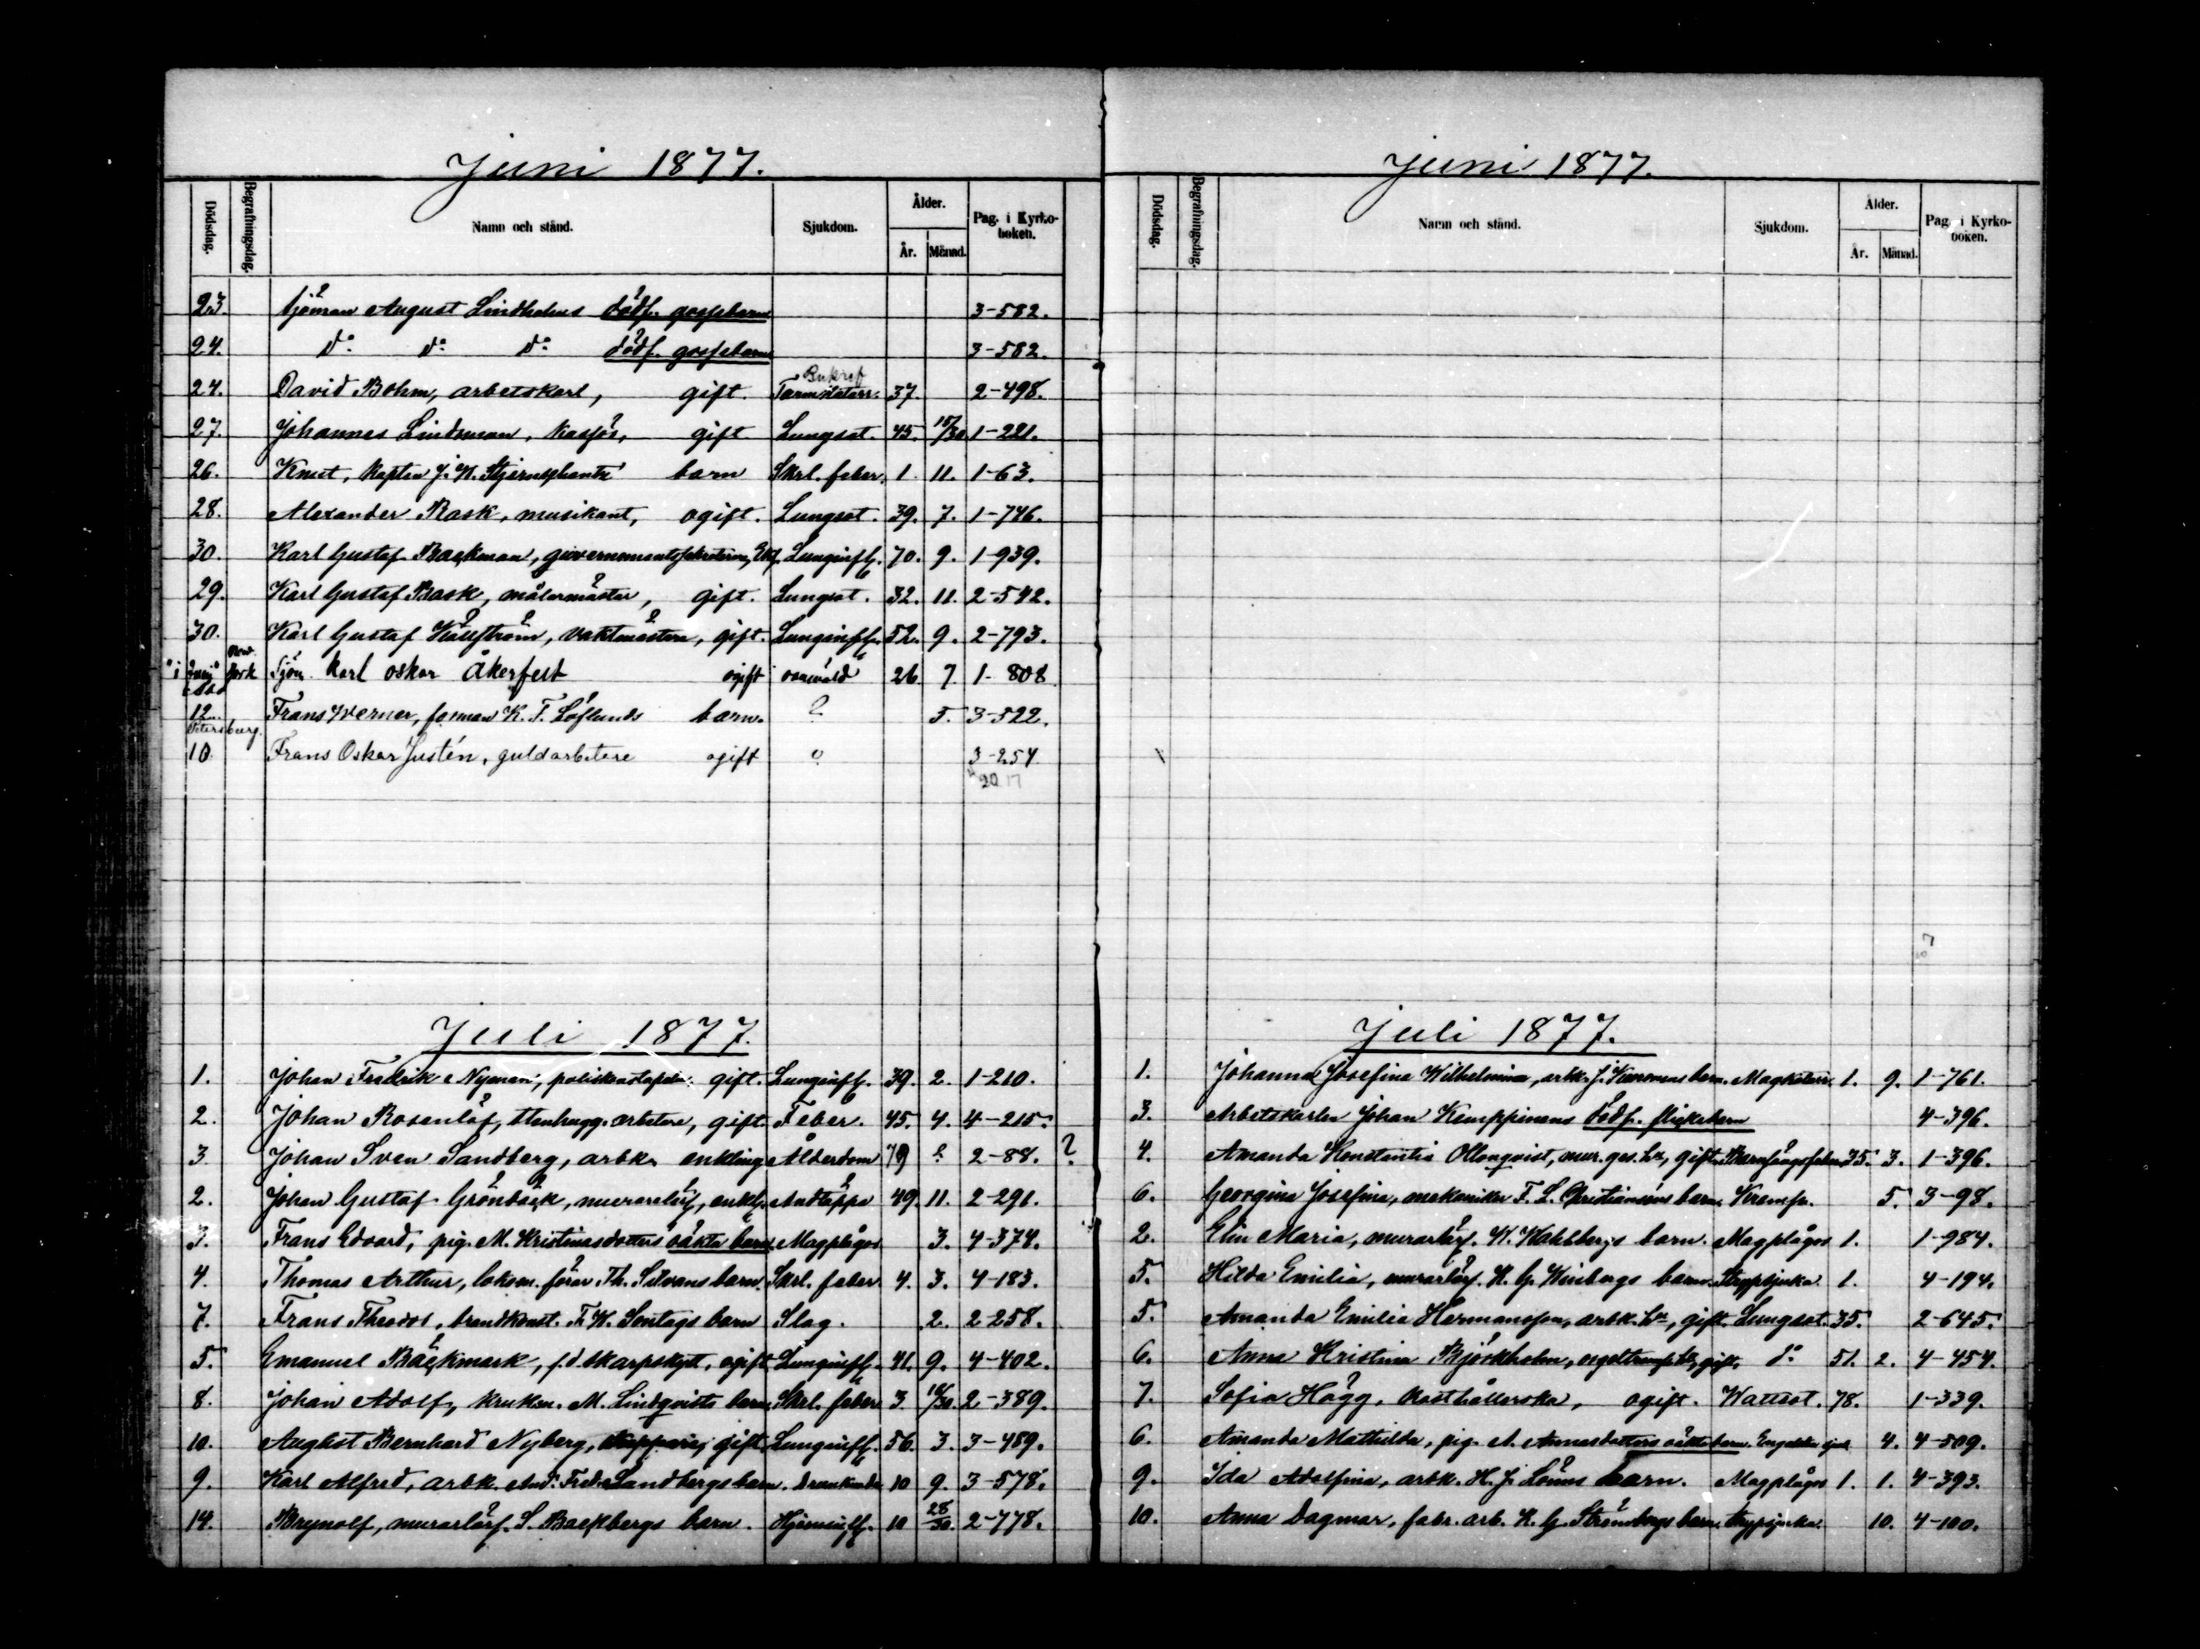 Juni 1877.
Dödsdag. Begrafningsdag. Namn och stånd. Sjukdom. Ålder. År. Månad. Pag. i Kyrkoboken.
23. Sjöman August Lindholms dödf. gossebarn 3-582.
24. Do Do Do dödf. gossebarn 3-582.
24. David Bohm, arbetskarl, gift. 37. 2-498.
27. Johannes Lindsman, gift Lungsot. 45. 15/30 1-221.
26. Knut, kapten J. W. Stjernschantz' barn Skrl. feber. 1. 11. 1-63.
28. Alexander Rask, musikant, ogift. Lungsot. 39. 7. 1-746.
30. Karl Gustaf Backman, Lunginfl. 70. 9. 1-939.
29. Karl Gustaf Bask, målarmäster, gift. Lungsot. 32. 11. 2-542.
30. Karl Gustaf vaktmästare, gift. Lunginfl. 52. 9. 2-793.
New York Sjöm. Karl Oskar Åkerfelt ogift 26 7 1-808
12. Frans Werner, forman K. T. Löflunds barn. ? 5. 3-522.
Petersburg.
10 Frans Oskar Justén, guldarbetare ogift 3-254
20 17
Juli 1877.
1. Johan Fredrik Nyman, gift. Lunginfl. 39. 2. 1-210.
2. Johan Rosenlöf, stenhugg. arbetare, gift. Feber. 45. 4. 4-215.
3 Johan Sven Sandberg, arbk. enkling Ålderdom 79 ? 2-88. ?
2. Johan Gustaf Grönbäck, murarelärl., enkl. Andtäppa 49. 11. 2-291.
3. Frans Edvard, pig. M. Kristinasdotters oäkta barn Magplågor 3. 4-374.
4. Thomas Arthur, lokom. förar Th. Silvans barn. Skrl. feber. 4. 3. 4-183.
7. Frans Theodor, brandkonst. F. W. Sontags barn Slag. 2. 2-258.
5. Emanuel Bäckmark, f.d. skarpskytt, ogift Lunginfl. 41. 9. 4-402.
8. Johan Adolf, M. Lindqvists barn, Skrl. feber 3. 2-389.
10. August Bernhard Nyberg, gift Lunginfl. 56. 3. 3-489.
9. Karl Alfred, arbk. And. Fred. Sandbergs barn. Drunknade 10 9. 3-578.
14. Brynolf, murarlärl. S. Backbergs barn. Hjerninfl. 10 28/30 2-778.
Juni 1877.
Dödsdag. Begrafningsdag. Namn och stånd. Sjukdom. Ålder. År. Månad. Pag. i Kyrkoboken.
Juli 1877.
1. Johanna Josefina Wilhelmina, arbk. J. barn. Magkatarr. 1. 9. 1-761.
3. Arbetskarlen Johan Kemppinens dödf. flickebarn 4-396.
4. Amanda Konstantia Ollonqvist, mur. ges. h., gift. Barnsängsfeber 35. 3. 1-396.
6. Georgina Josefina, mekaniker F. L. Kristiansens barn. Kramp. 5. 3-98.
2. Elin Maria, murarlärl. K. Wahlbergs barn. Magplågor 1. 1-984.
5. Hilda Emilia, murarlärl. K. G. Winbergs barn. Strypsjuka 1. 4-194.
5. Amanda Emilia Hermansson, arbk. h., gift. Lungsot. 35. 2-645.
6. Anna Kristina Björkholm, gift. do 51. 2. 4-454.
7. Sofia Hägg, kosthållerska, ogift. Wattsot. 78. 1-339.
6. Amanda Mathilda, pig. A. Annasdotters oäkta barn. Engelska sjuk. 4. 4-509.
9. Ida Adolfina, arbk. H. J. Lönns barn. Magplågor 1. 1. 4-393.
10. Anna Dagmar, fabr. arb. K. G. Strömbergs barn. Strypsjuka. 10. 4-100.